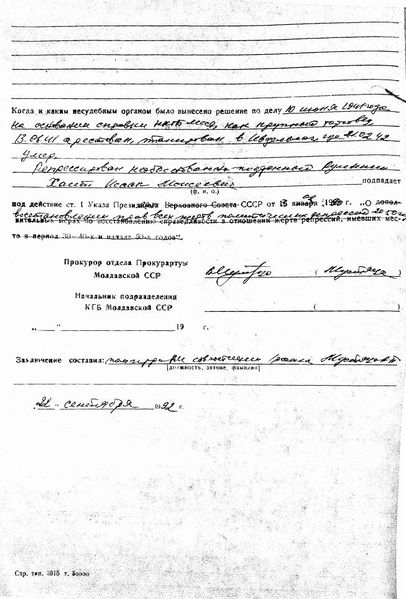 Когда и каким несудебным органом было вынесено решение по делу 10 июня 1941 года
на основании справки НКГБ МССР, как крупный торговец
13.06.41 арестован, этапирован в Ивдельлаг, где 21.02.42
умер.
Репрессирован необоснованно подданный Румынии
Исаак Моисеевич подпадает
(ф. и. о.)
под действие ст. 1 Указа Президиума Верховного Совета СССР от 16 января 1989 г. „О дополнительных мерах по восстановлению справедливости в отношении жертв репрессий, имевших место в период 30–40-х и начале 50-х годов“.
восстановлении прав всех жертв политических репрессий 20-50
Прокурор отдела Прокуратуры
Молдавской ССР
Начальник подразделения
КГБ Молдавской ССР
„ “ 19 г.
Заключение составил:
[должность, звание, фамилия]
22 сентября 1992 г.
Стр. тип. 3815 т. 50000